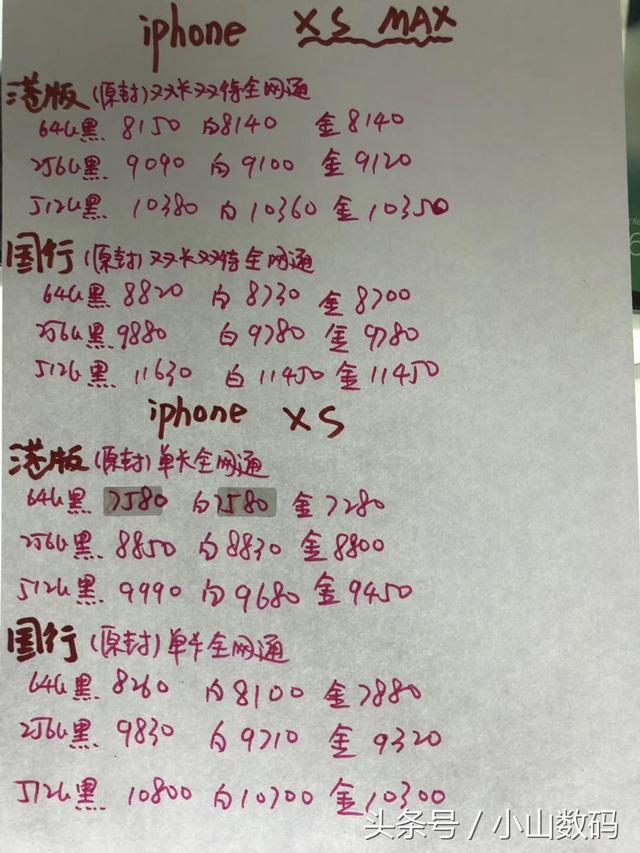 iphone XS MAX
港版(原封)双卡双待全网通
64G黑 8150 白8140 金8140
256G黑 9090 白9100 金9120
512G黑 10380 白10360 金10350
国行(原封)双卡双待全网通
64G黑 8820 白8730 金8700
256G黑 9880 白9780 金9780
512G黑 11630 白11450 金11450
iphone XS
港版(原封)单卡全网通
64G黑 7580 白7580 金7280
256G黑 8850 白8830 金8800
512G黑 9990 白9680 金9450
国行(原封)单卡全网通
64G黑 8260 白8100 金7880
256G黑 9830 白9710 金9320
512G黑 10800 白10700 金10300
头条号/小山数码